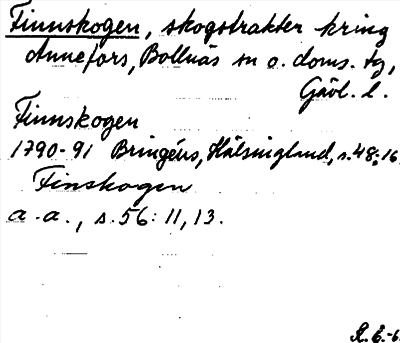 Finnskogen, skogstrakter kring
Annefors, Bollnäs sn o. doms. tg,
Gävl. l.
Finnskogen
1790-91 Bringéus, Hälsingland, s. 48: 16.
Finskogen
a. a., s. 56: 11, 13.
R. E. -6